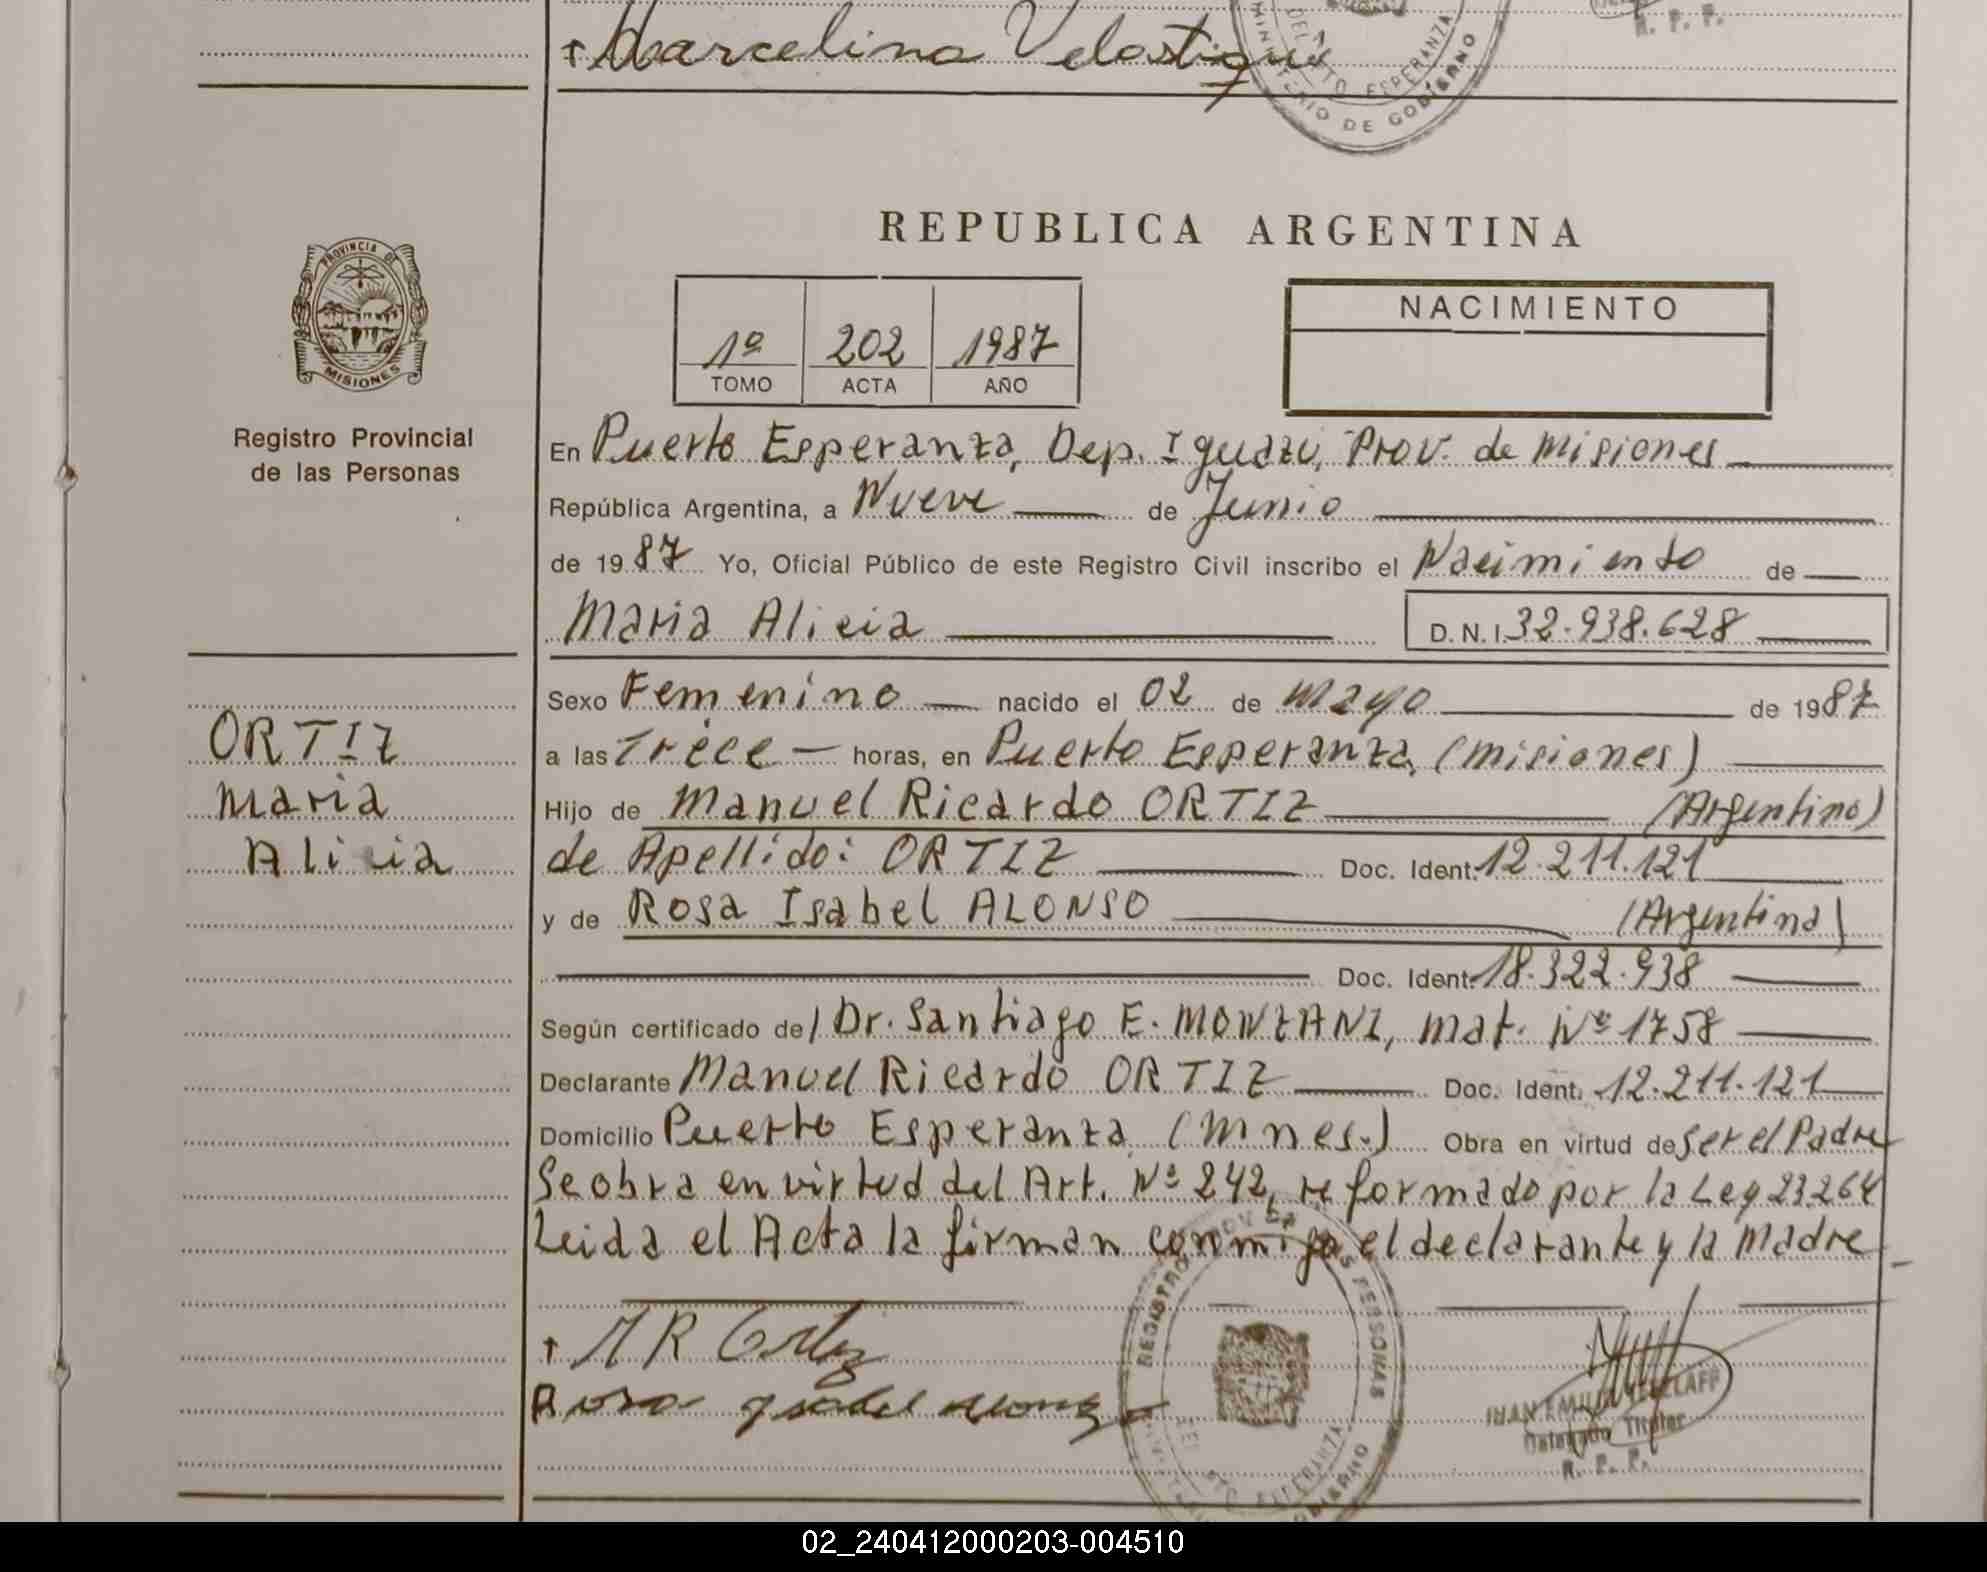 Marcelino
DEL
ESPERANZA
DE GOBIERNO
R. P. P.
REPUBLICA ARGENTINA
PROVINCIA DE
MISIONES
Registro Provincial
de las Personas
1º 202 1987
TOMO ACTA AÑO
NACIMIENTO
En Puerto Esperanza, Dep. Iguazú, Prov. de Misiones
República Argentina, a Nueve de Junio
de 1987 Yo, Oficial Público de este Registro Civil inscribo el Nacimiento de
Maria Alicia D. N. I. 32.938.628
Sexo Femenino nacido el 02 de Mayo de 1987
ORTIZ
Maria
Alicia
a las Trece horas, en Puerto Esperanza, (Misiones)
Hijo de Manuel Ricardo ORTIZ (Argentino)
de Apellido: ORTIZ Doc. Ident. 12.211.121
y de Rosa Isabel ALONSO (Argentina)
Doc. Ident. 18.322.938
Según certificado de/ Dr. Santiago E. MONZANI, Mat. Nº 1758
Declarante Manuel Ricardo ORTIZ Doc. Ident. 12.211.121
Domicilio Puerto Esperanza (Mnes.) Obra en virtud de Ser el Padre
Se obra en virtud del Art. Nº 242, reformado por la Ley 23.264
Leida el Acta la firman conmigo el declarante y la Madre
M R Ortiz
Rosa Ysabel Alonzo
REGISTRO PROV. DE LAS PERSONAS
ESPERANZA
JUAN EMILIO
Delegado Titular
R. P. P.
02_240412000203-004510